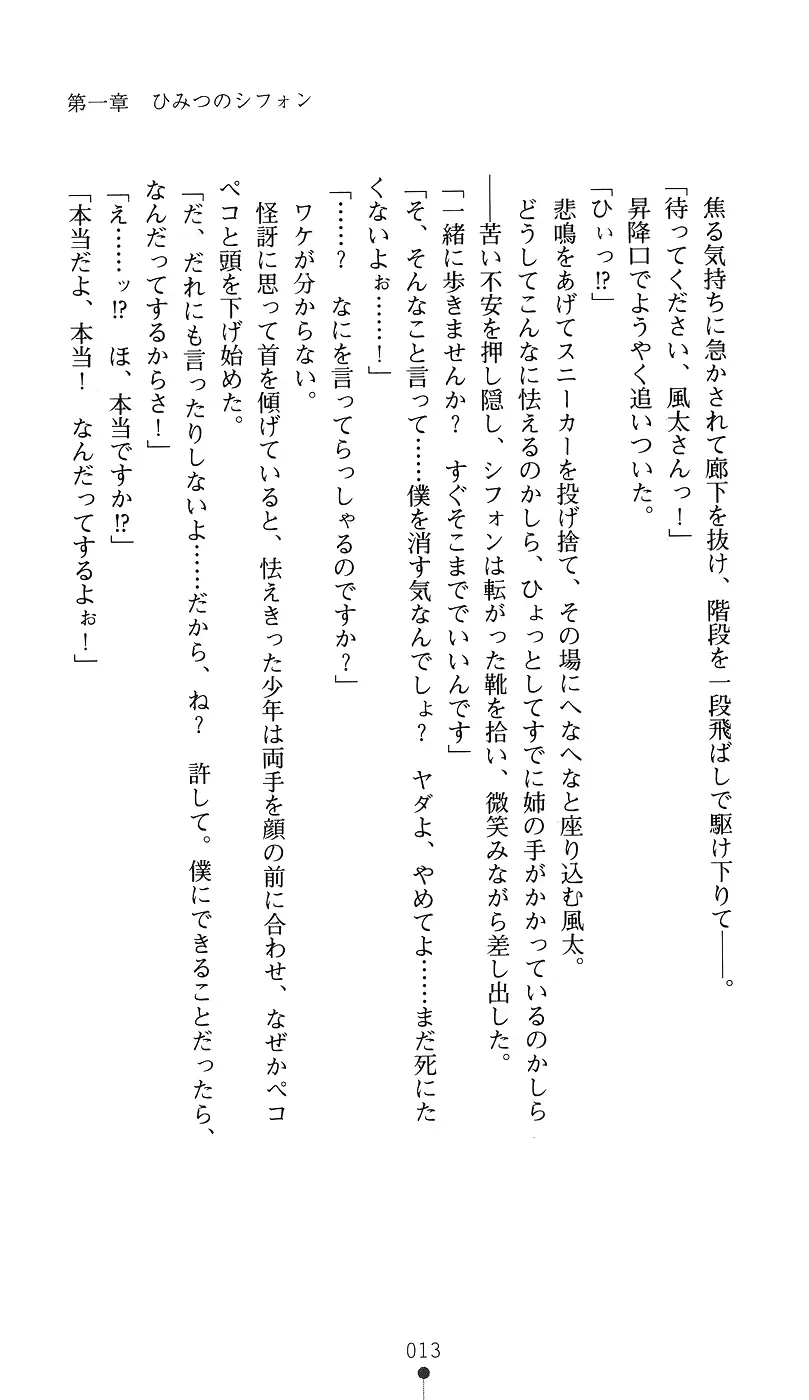 第一章　ひみつのシフォン
焦る気持ちに急かされて廊下を抜け、階段を一段飛ばしで駆け下りて――。
「待ってください、風太さんっ！」
昇降口でようやく追いついた。
「ひぃっ⁉」
悲鳴をあげてスニーカーを投げ捨て、その場にへなへなと座り込む風太。
どうしてこんなに怯えるのかしら、ひょっとしてすでに姉の手がかかっているのかしら
――苦い不安を押し隠し、シフォンは転がった靴を拾い、微笑みながら差し出した。
「一緒に歩きませんか？　すぐそこまででいいんです」
「そ、そんなこと言って……僕を消す気なんでしょ？　ヤダよ、やめてよ……まだ死にた
くないよぉ……！」
「……？　なにを言ってらっしゃるのですか？」
ワケが分からない。
怪訝に思って首を傾げていると、怯えきった少年は両手を顔の前に合わせ、なぜかペコ
ペコと頭を下げ始めた。
「だ、だれにも言ったりしないよ……だから、ね？　許して。僕にできることだったら、
なんだってするからさ！」
「え……ッ⁉　ほ、本当ですか⁉」
「本当だよ、本当！　なんだってするよぉ！」
013